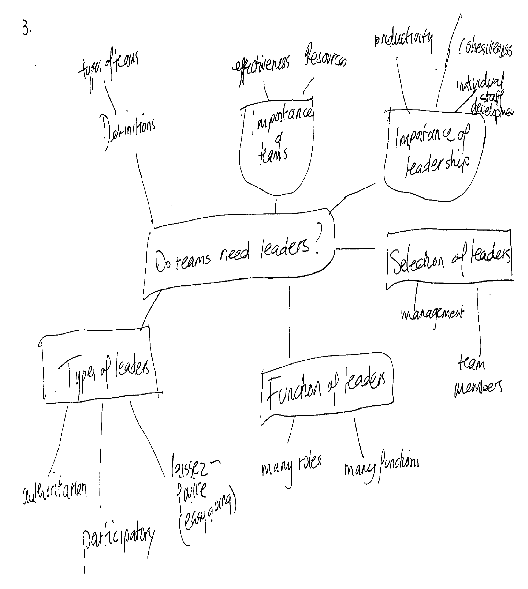 3.
types of teams
Definitions
effectiveness
Resources
importance
of
teams
productivity
Cohesiveness
individual
staff
development
Importance of
leadership
Do teams need leaders?
Selection of leaders
management
team
members
Types of leaders
authoritarian
participatory
laissez-
faire
(easy going)
Function of leaders
many roles
many functions